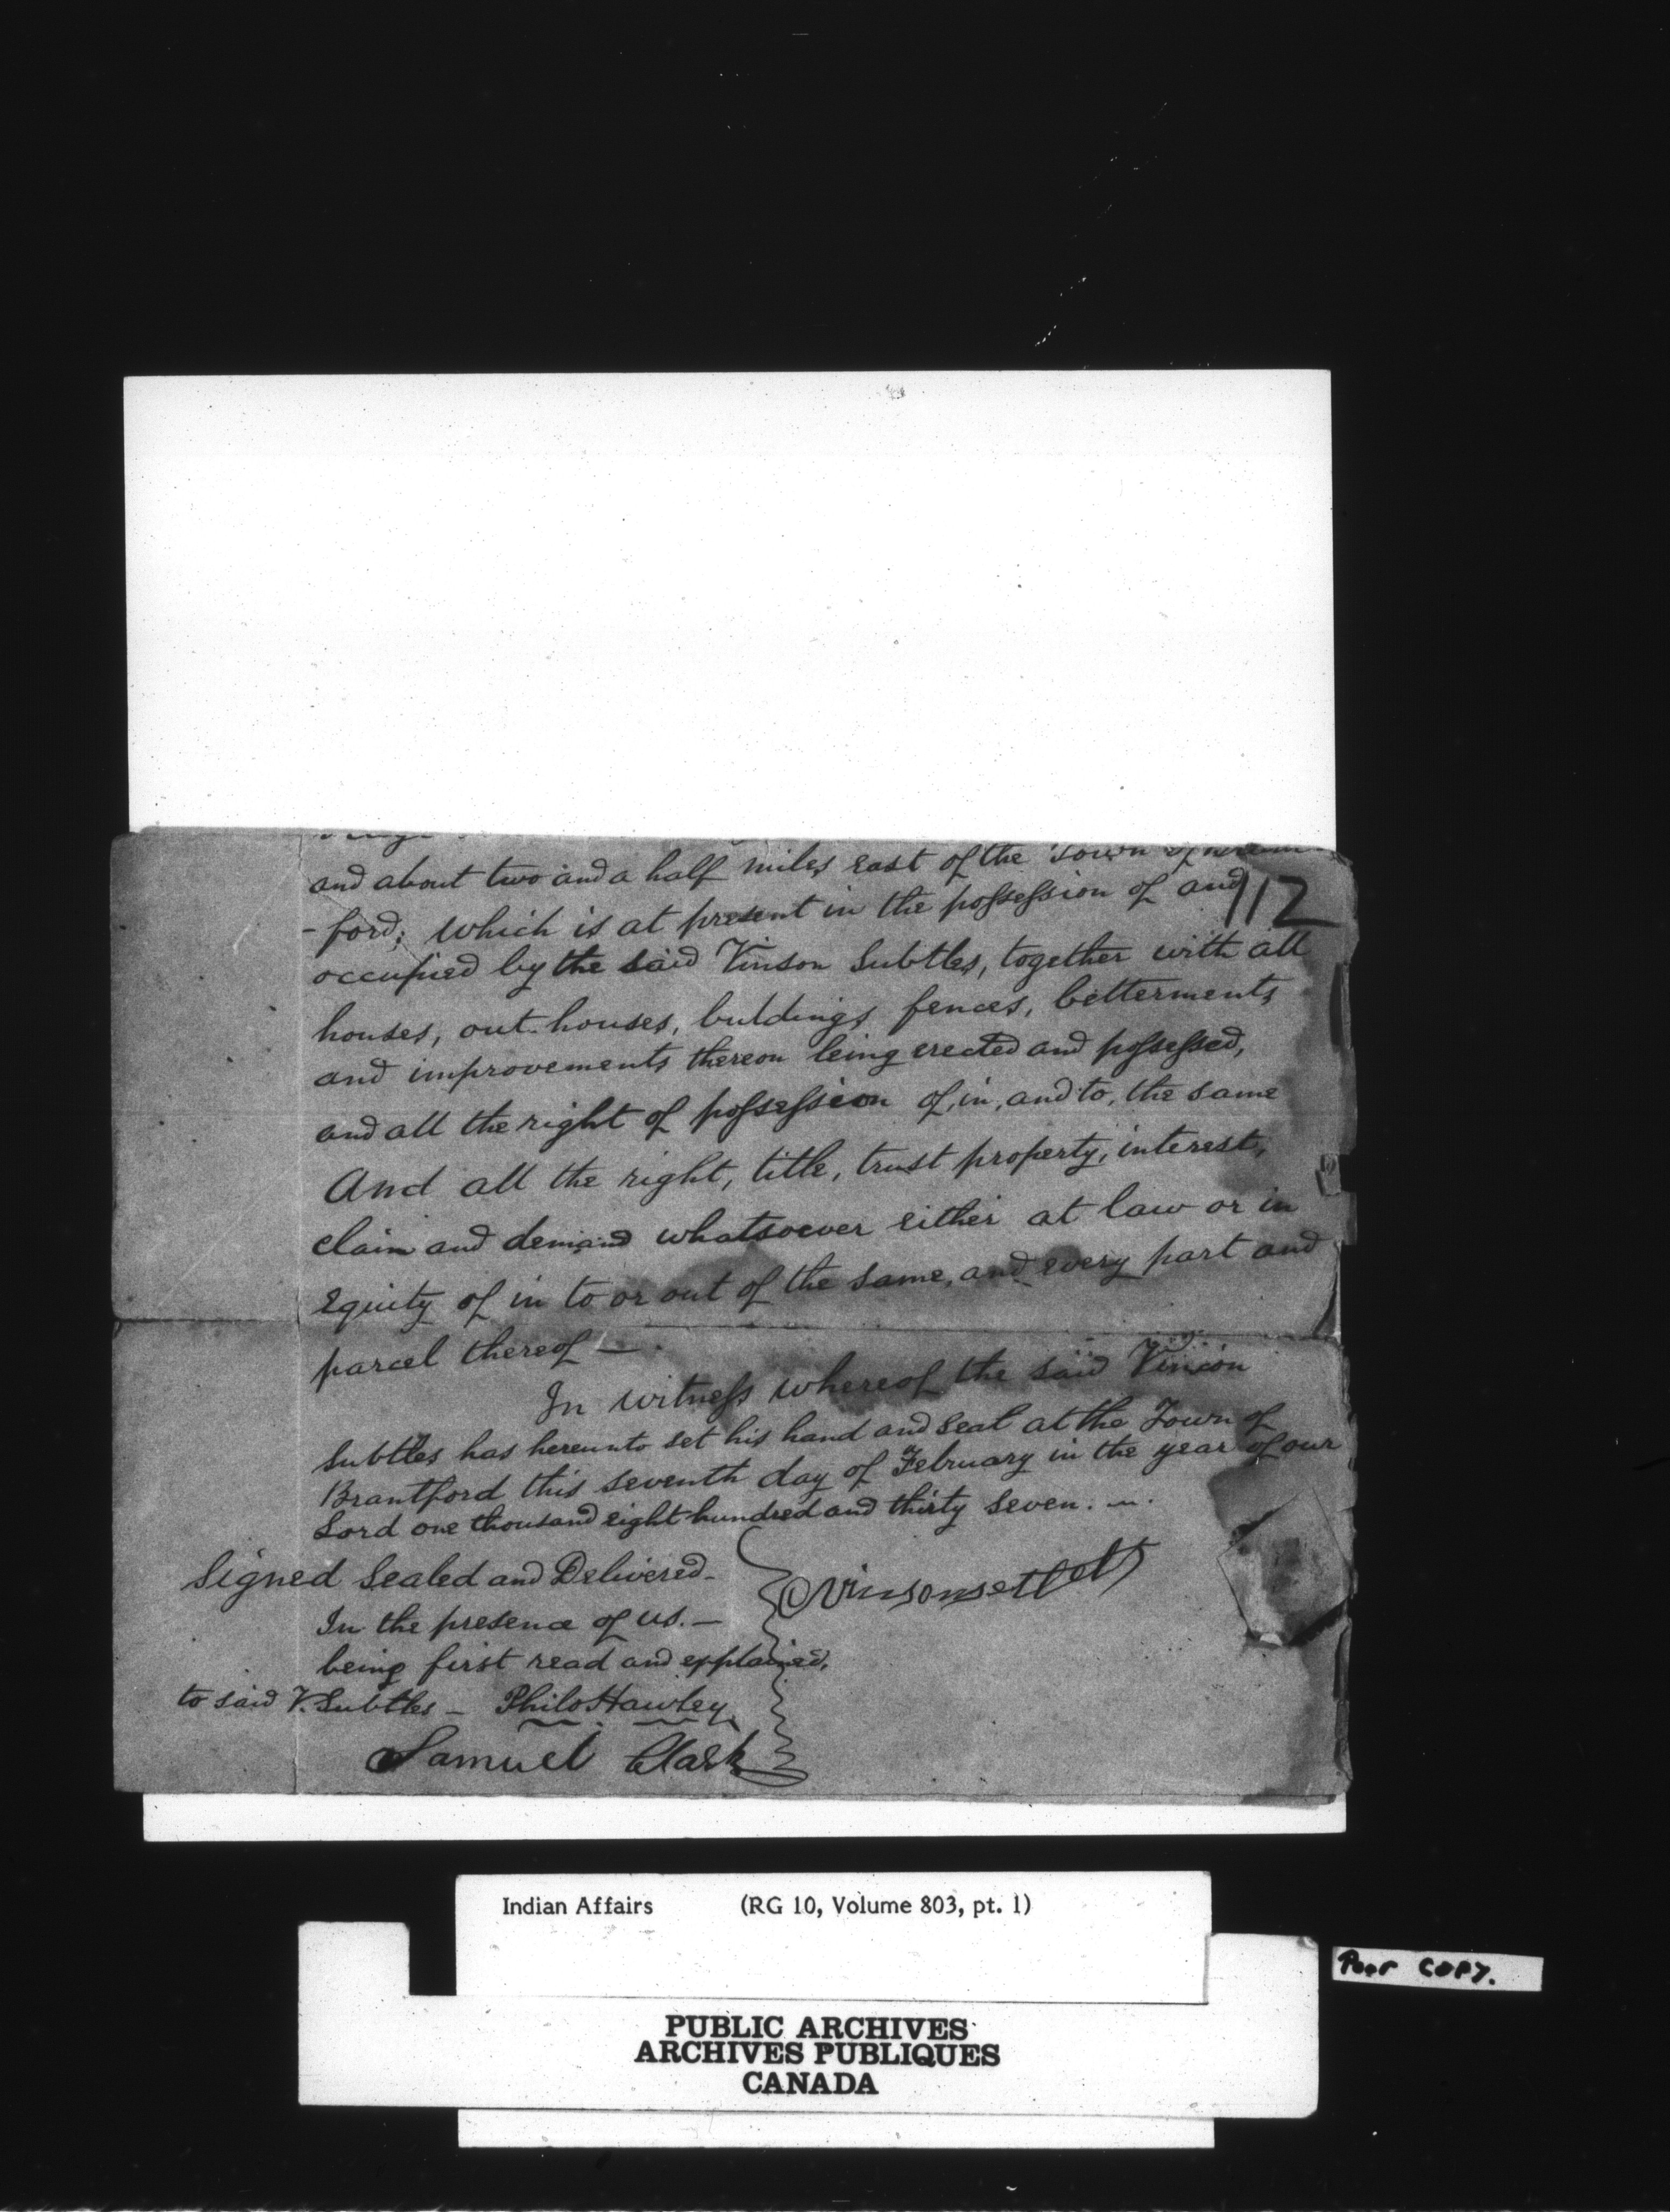 and about two and a half miles east of the Town of
112
-ford; which is at present in the possession of and
occupied by the said Vinson Subtles, together with all
houses, out-houses, buldings, fences, betterments
and improvements thereon being erected and possessed,
and all the right of possession of, in, and to, the same
And all the right, title, trust property, interest,
claim and demand whatsoever either at law or in
Equity of in to or out of the same, and every part and
parcel thereof —
In witness whereof the said Vinson
Subtles has hereunto set his hand and seal at the Town of
Brantford this seventh day of February in the year of our
Lord one thousand eight hundred and thirty seven.
Signed Sealed and Delivered
In the presence of us. —
being first read and explained,
to said V. Subtles — Philo Hawley
Samuel Clark
Indian Affairs (RG 10, Volume 803, pt. 1)
Poor COPY.
PUBLIC ARCHIVES
ARCHIVES PUBLIQUES
CANADA